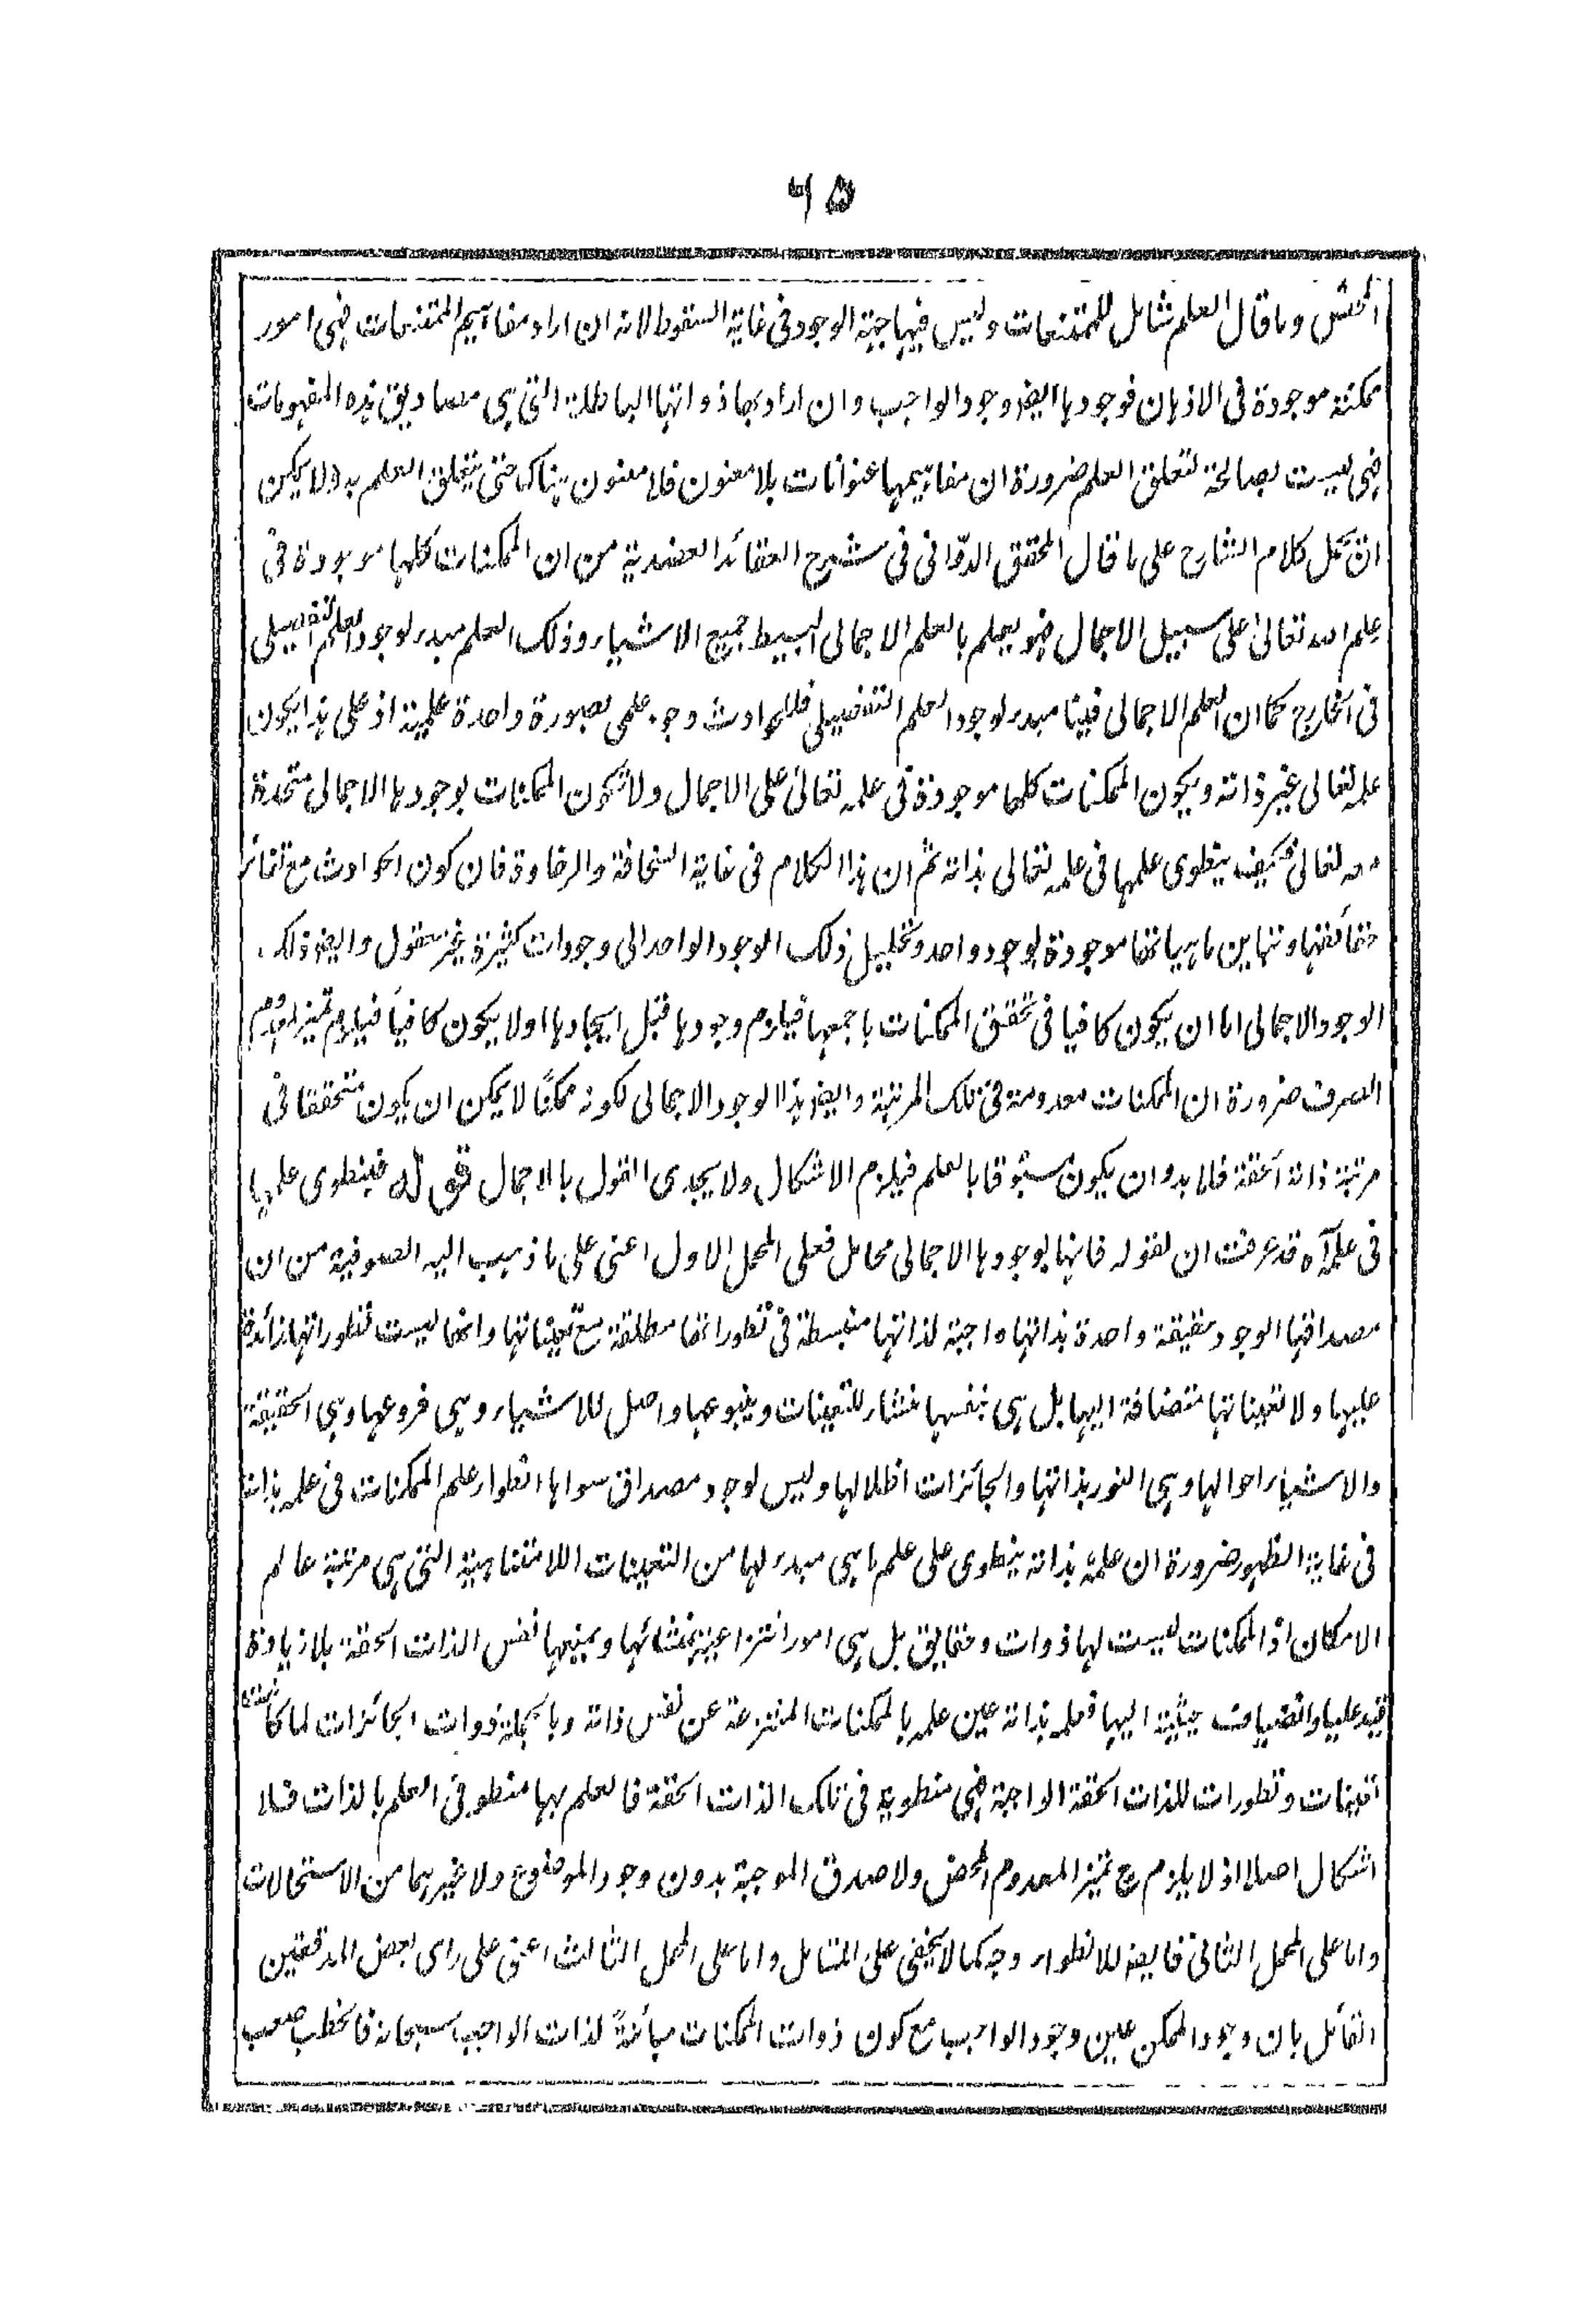 ٦٥
المحشى وما قال العلم شامل للممتنعات وليس فيها جهة الوجود فى غاية السقوط لانه ان اراد مفاهيم الممتنعات فهى امور
ممكنة موجودة فى الاذهان فوجودها ايضا وجود الواجب وان اراد بها ذواتها الباطلة التى هى مصاديق هذه المفهومات
فهى ليست بصالحة لتعلق العلم ضرورة ان مفاهيمها عنوانات بلا معنون فلا معنون هناك حتى يتعلق العلم به ولا يمكن
ان يحمل كلام الشارح على ما قال المحقق الدوّانى فى شرح العقائد العضدية من ان الممكنات كلها موجودة فى
علم الله تعالى على سبيل الاجمال فهو يعلم بالعلم الاجمالى البسيط جميع الاشياء وذلك العلم مبدء لوجود العلم التفصيلى
فى الخارج كما ان العلم الاجمالى فينا مبدء لوجود العلم التفصيلى فللحوادث وجود علمى بصورة واحدة علمية اذ على هذا يكون
علمه تعالى غير ذاته ويكون الممكنات كلها موجودة فى علمه تعالى على الاجمال ولا تكون الممكنات بوجودها الاجمالى متحدة
معه تعالى فكيف ينطوى علمها فى علمه تعالى بذاته ثم ان هذا الكلام فى غاية السخافة والرخاوة فان كون الحوادث مع تغائر
حقائقها وتباين ماهياتها موجودة بوجود واحد وتحليل ذلك الوجود الواحد الى وجودات كثيرة غير معقول وايضا ذلك
الوجود الاجمالى اما ان يكون كافيا فى تحقق الممكنات باجمعها فيلزم وجودها قبل ايجادها او لا يكون كافياً فيلزم تميز المعدوم
الصرف ضرورة ان الممكنات معدومة فى تلك المرتبة وايضا هذا الوجود الاجمالى لكونه ممكنًا لا يمكن ان يكون متحققا فى
مرتبة ذاته الحقة فلا بد وان يكون مسبوقا بالعلم فيلزم الاشكال ولا يجدى القول بالاجمال قوله فينطوى علمها
فى علمه آه قد عرفت ان لقوله فانها بوجودها الاجمالى محامل فعلى المحمل الاول اعنى على ما ذهب اليه الصوفية من ان
مصداقها الوجود حقيقة واحدة بذاتها واجبة لذاتها منبسطة فى تطوراتها مطلقة مع تعيناتها وانها ليست تطوراتها زائدة
عليها ولا تعيناتها منضافة اليها بل هى بنفسها منشاء للتعينات وينبوعها واصل للاشياء وهى فروعها وهى الحقيقة
والاشياء احوالها وهى النور بذاتها والجائزات اظلالها وليس لوجود مصداق سواها انطواء علم الممكنات فى علمه بذاته
فى غاية الظهور ضرورة ان علمه بذاته ينطوى على علم ما هى مبدء لها من التعينات اللامتناهية التى هى مرتبة عالم
الامكان اذ الممكنات ليست لها ذوات وحقايق بل هى امور انتزاعية منشائها ومبنيها نفس الذات الحقة بلا زيادة
قيد عليها وانضياف حيثية اليها فعلمه بذاته عين علمه بالممكنات المنتزعة عن نفس ذاته وبالجملة ذوات الجائزات لما كانت
تعينات وتطورات للذات الحقة الواجبة فهى منطوية فى تلك الذات الحقة فالعلم بها منطو فى العلم بالذات فلا
اشكال اصلا اذ لا يلزم ح تميز المعدوم المحض ولا صدق الموجبة بدون وجود الموضوع ولا غيرهما من الاستحالات
واما على المحمل الثانى فايضا للانطواء وجه كما لا يخفى على المتامل واما على المحمل الثالث اعنى على راى بعض المدققين
القائل بان وجود الممكن عين وجود الواجب مع كون ذوات الممكنات مبائنةً لذات الواجب سبحانه فالخطب صعب